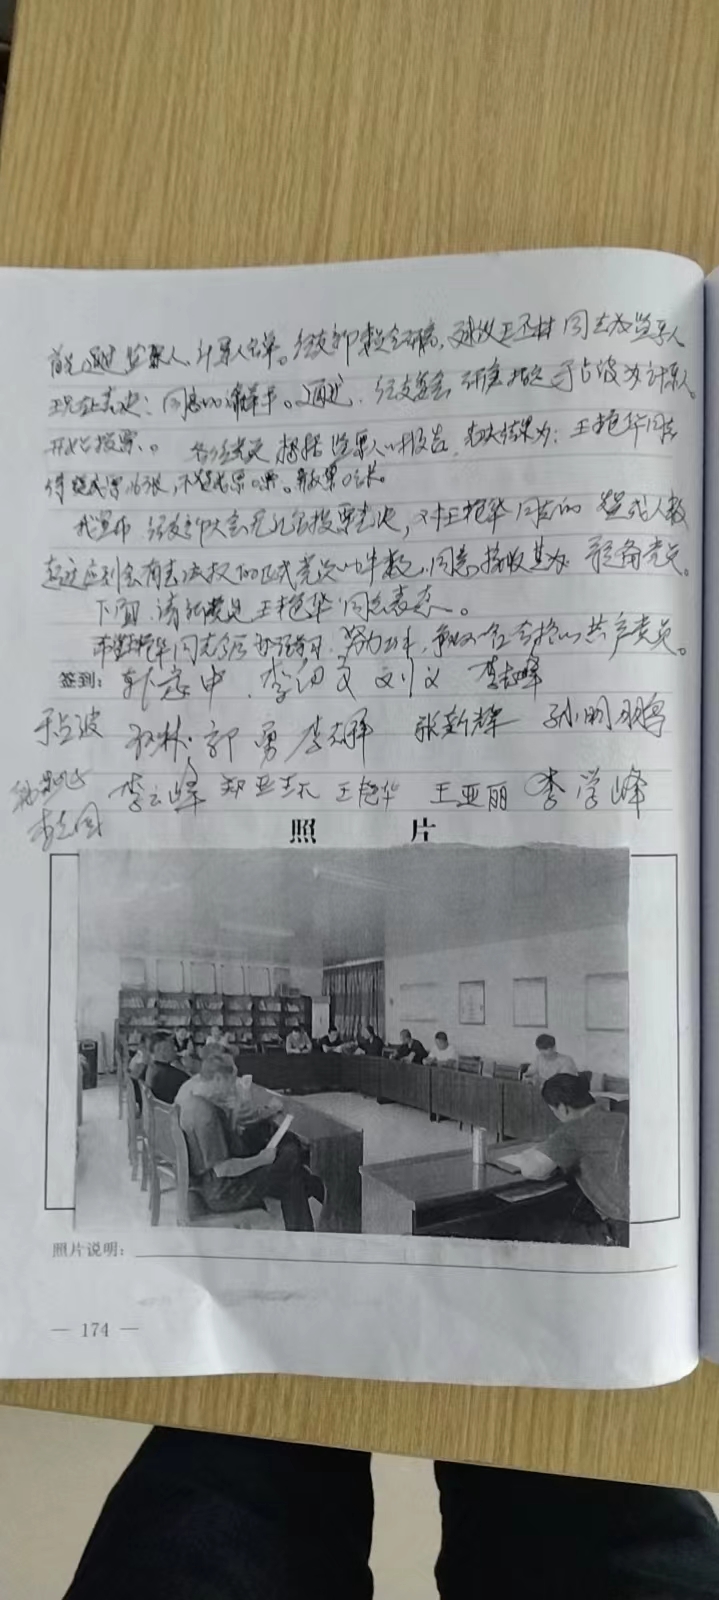 首先通过监票人、计票人名单。经支部委员会研究，建议王丕林同志为监票人
现在表决：同意的请举手。通过。经支委会研究指定于占波为计票人。
开始投票。各位党员 根据监票人的报告，表决结果为：王艳华同志
得赞成票16张，不赞成票0票。弃权票0张。
我宣布，经支部大会无记名投票表决，对王艳华同志的赞成人数
超过应到会有表决权的正式党员的半数，同意接收其为预备党员。
下面，请 王艳华同志表态。
希望王艳华同志今后 学习，努力工作，争取 合格的共产党员。
签到： 李 文 刘义 李志峰
于占波 林 郭勇 李志 张新辉 孙明鹏
李云峰 郑亚 王艳华 王亚丽 李学峰
李
照 片
照片说明：
— 174 —